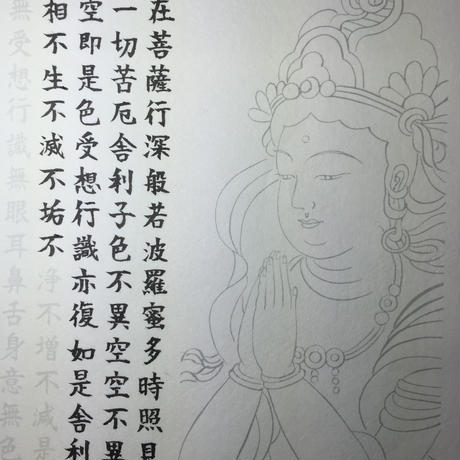 在菩薩行深般若波羅蜜多時照見
一切苦厄舍利子色不異空空不異
空即是色受想行識亦復如是舍利
相不生不滅不垢不淨不增不減是
無受想行識無眼耳鼻舌身意無色